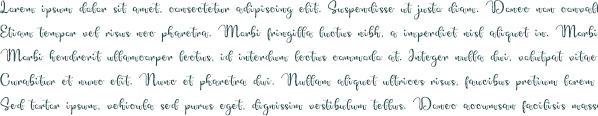 Lorem ipsum dolor sit amet, consectetur adipiscing elit. Suspendisse ut justo diam. Donec non convall
Etiam tempor vel risus nec pharetra. Morbi fringilla luctus nibh, a imperdiet nisl aliquet in. Morbi
Morbi hendrerit ullamcorper lectus, id interdum lectus commodo at. Integer nulla dui, volutpat vitae
Curabitur et nunc elit. Nunc et pharetra dui. Nullam aliquet ultrices risus, faucibus pretium lorem
Sed tortor ipsum, vehicula sed purus eget, dignissim vestibulum tellus. Donec accumsan facilisis mass